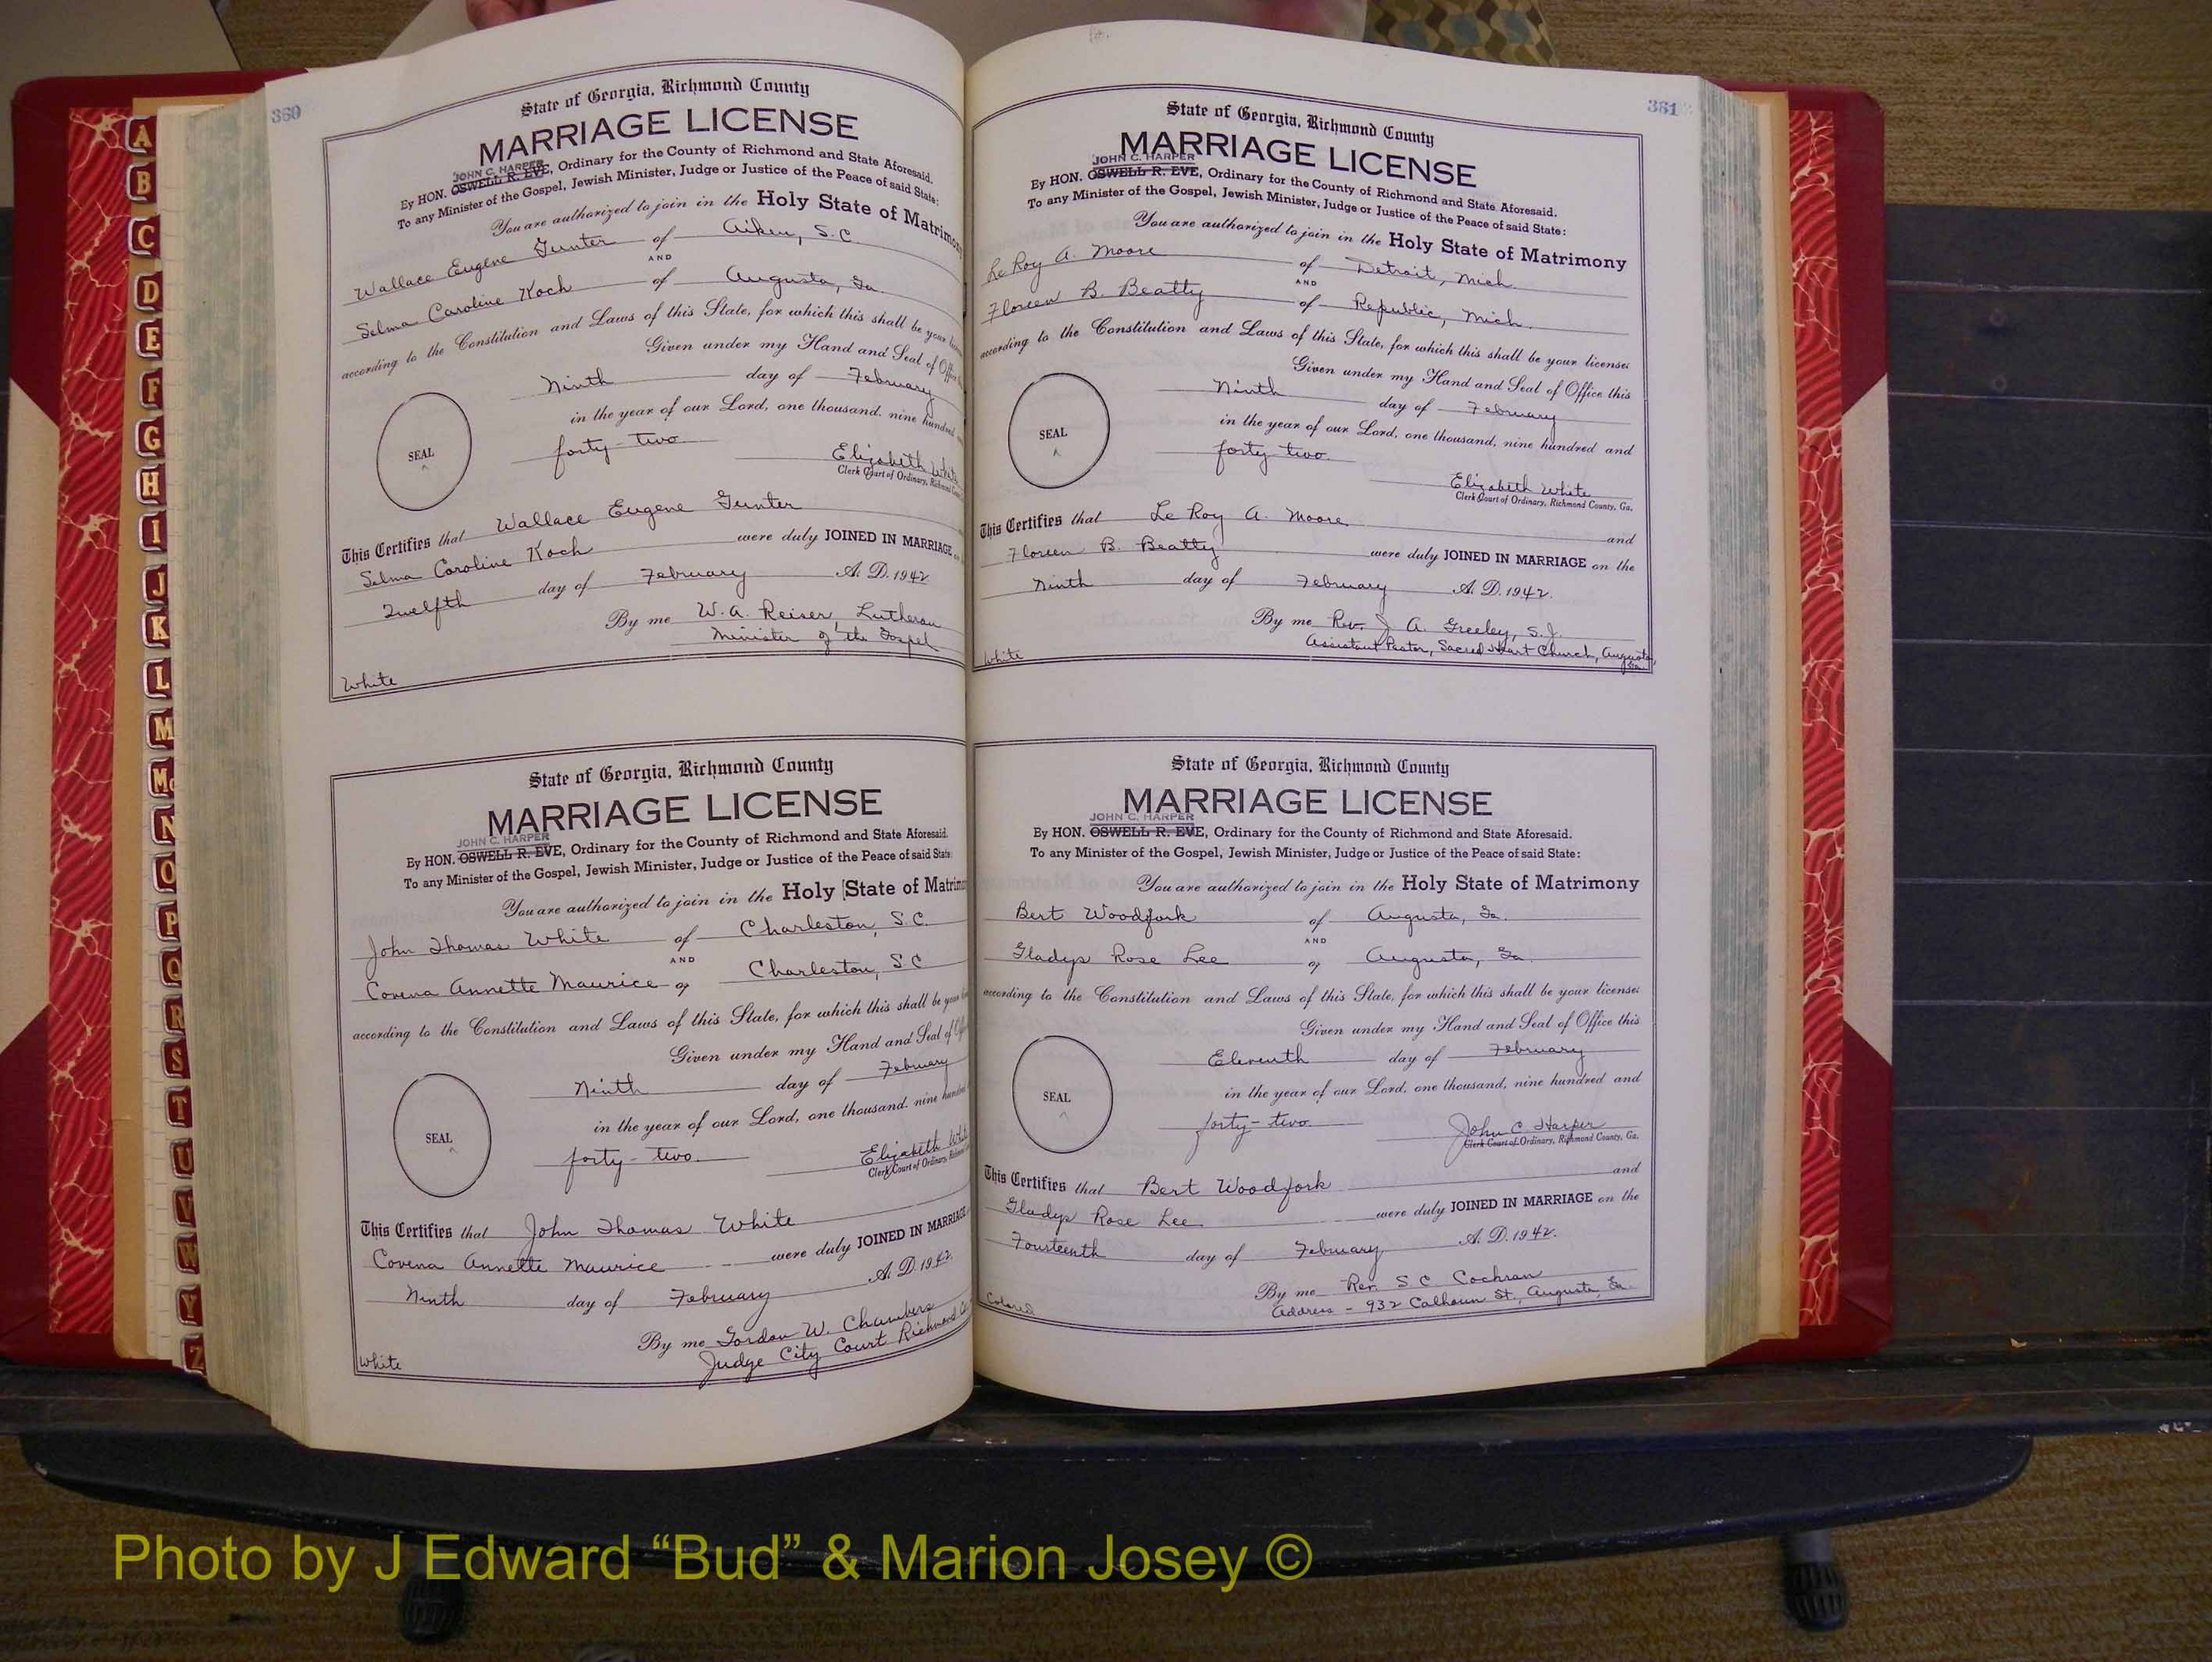 A
B
C
D
E
F
G
H
I
J
K
L
M
Mc
N
O
P
Q
R
S
T
U
V
W
Y
Z
360
State of Georgia, Richmond County
MARRIAGE LICENSE
JOHN C. HARPER
By HON. OSWELL R. EVE, Ordinary for the County of Richmond and State Aforesaid.
To any Minister of the Gospel, Jewish Minister, Judge or Justice of the Peace of said State:
You are authorized to join in the Holy State of Matrimony
Wallace Eugene Gunter of Aiken, S.C.
AND
Selma Caroline Koch of Augusta, Ga.
according to the Constitution and Laws of this State, for which this shall be your
Given under my Hand and Seal of Office
Ninth day of February
in the year of our Lord, one thousand, nine hundred
SEAL
forty-two
Elizabeth White
Clerk Court of Ordinary, Richmond
This Certifies that Wallace Eugene Gunter
Selma Caroline Koch were duly JOINED IN MARRIAGE
Twelfth day of February A. D. 1942
By me W. A. Reiser, Lutheran
Minister of the Gospel
White
State of Georgia, Richmond County
MARRIAGE LICENSE
JOHN C. HARPER
By HON. OSWELL R. EVE, Ordinary for the County of Richmond and State Aforesaid.
To any Minister of the Gospel, Jewish Minister, Judge or Justice of the Peace of said State:
You are authorized to join in the Holy State of Matrimo
John Thomas White of Charleston, S.C.
AND
Covena Annette Maurice of Charleston, S.C
according to the Constitution and Laws of this State, for which this shall be your
Given under my Hand and Seal of
Ninth day of February
in the year of our Lord, one thousand nine hundred
SEAL
forty-two
Elizabeth White
Clerk Court of Ordinary, Richmond
This Certifies that John Thomas White
Covena Annette Maurice were duly JOINED IN MARRIAGE
Ninth day of February A. D. 1942.
By me Gordon W. Chambers
Judge City Court Richmond Co.
White
361
State of Georgia, Richmond County
MARRIAGE LICENSE
JOHN C. HARPER
By HON. OSWELL R. EVE, Ordinary for the County of Richmond and State Aforesaid.
To any Minister of the Gospel, Jewish Minister, Judge or Justice of the Peace of said State:
You are authorized to join in the Holy State of Matrimony
Le Roy A. Moore of Detroit, Mich.
AND
Floreen B. Beatty of Republic, Mich.
according to the Constitution and Laws of this State, for which this shall be your license:
Given under my Hand and Seal of Office this
Ninth day of February
in the year of our Lord, one thousand, nine hundred and
SEAL
forty two.
Elizabeth White
Clerk Court of Ordinary, Richmond County, Ga.
This Certifies that Le Roy A. Moore and
Floreen B. Beatty were duly JOINED IN MARRIAGE on the
Ninth day of February A. D. 1942.
By me Rev. J A. Greeley, S.J.
Assistant Pastor, Sacred Heart Church, Augusta, Ga.
White
State of Georgia, Richmond County
MARRIAGE LICENSE
JOHN C. HARPER
By HON. OSWELL R. EVE, Ordinary for the County of Richmond and State Aforesaid.
To any Minister of the Gospel, Jewish Minister, Judge or Justice of the Peace of said State:
You are authorized to join in the Holy State of Matrimony
Bert Woodfork of Augusta, Ga.
AND
Gladys Rose Lee of Augusta, Ga.
according to the Constitution and Laws of this State, for which this shall be your license:
Given under my Hand and Seal of Office this
Eleventh day of February
in the year of our Lord, one thousand, nine hundred and
SEAL
forty-two
John C. Harper
Clerk Court of Ordinary, Richmond County, Ga.
This Certifies that Bert Woodfork and
Gladys Rose Lee were duly JOINED IN MARRIAGE on the
Fourteenth day of February A. D. 1942.
By me Rev. S C. Cochran
Address - 932 Calhoun St., Augusta, Ga.
Colored
Photo by J Edward “Bud” & Marion Josey ©